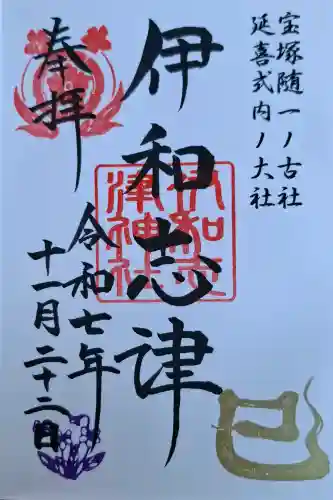 宝塚随一ノ古社
延喜式内ノ大社
伊和志津
伊和志津神社
奉拝
令和七年
十一月二十二日
巳